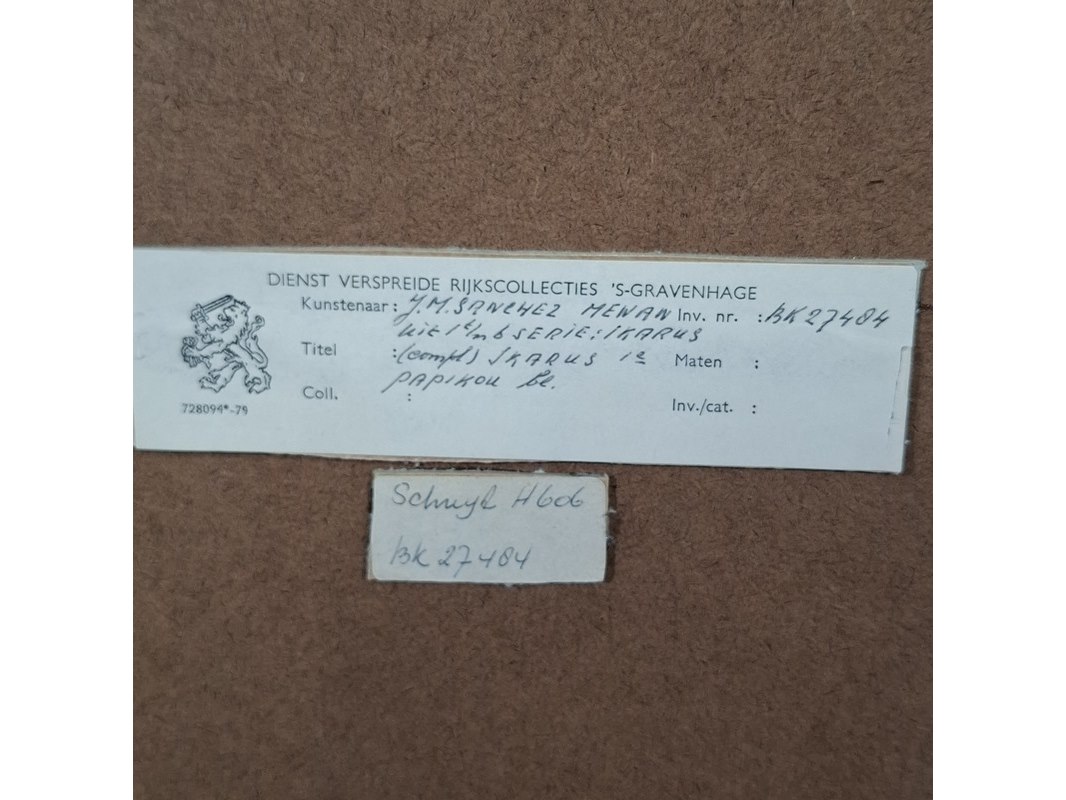 DIENST VERSPREIDE RIJKSCOLLECTIES 'S-GRAVENHAGE
Kunstenaar: J.M. SANCHEZ MENAN Inv. nr. : BK 27484
uit 1 t/m 6 SERIE: IKARUS
Titel : (compl) IKARUS 1e Maten :
PAPIKOU
Coll. : Inv./cat. :
728094*-79
H606
BK 27484